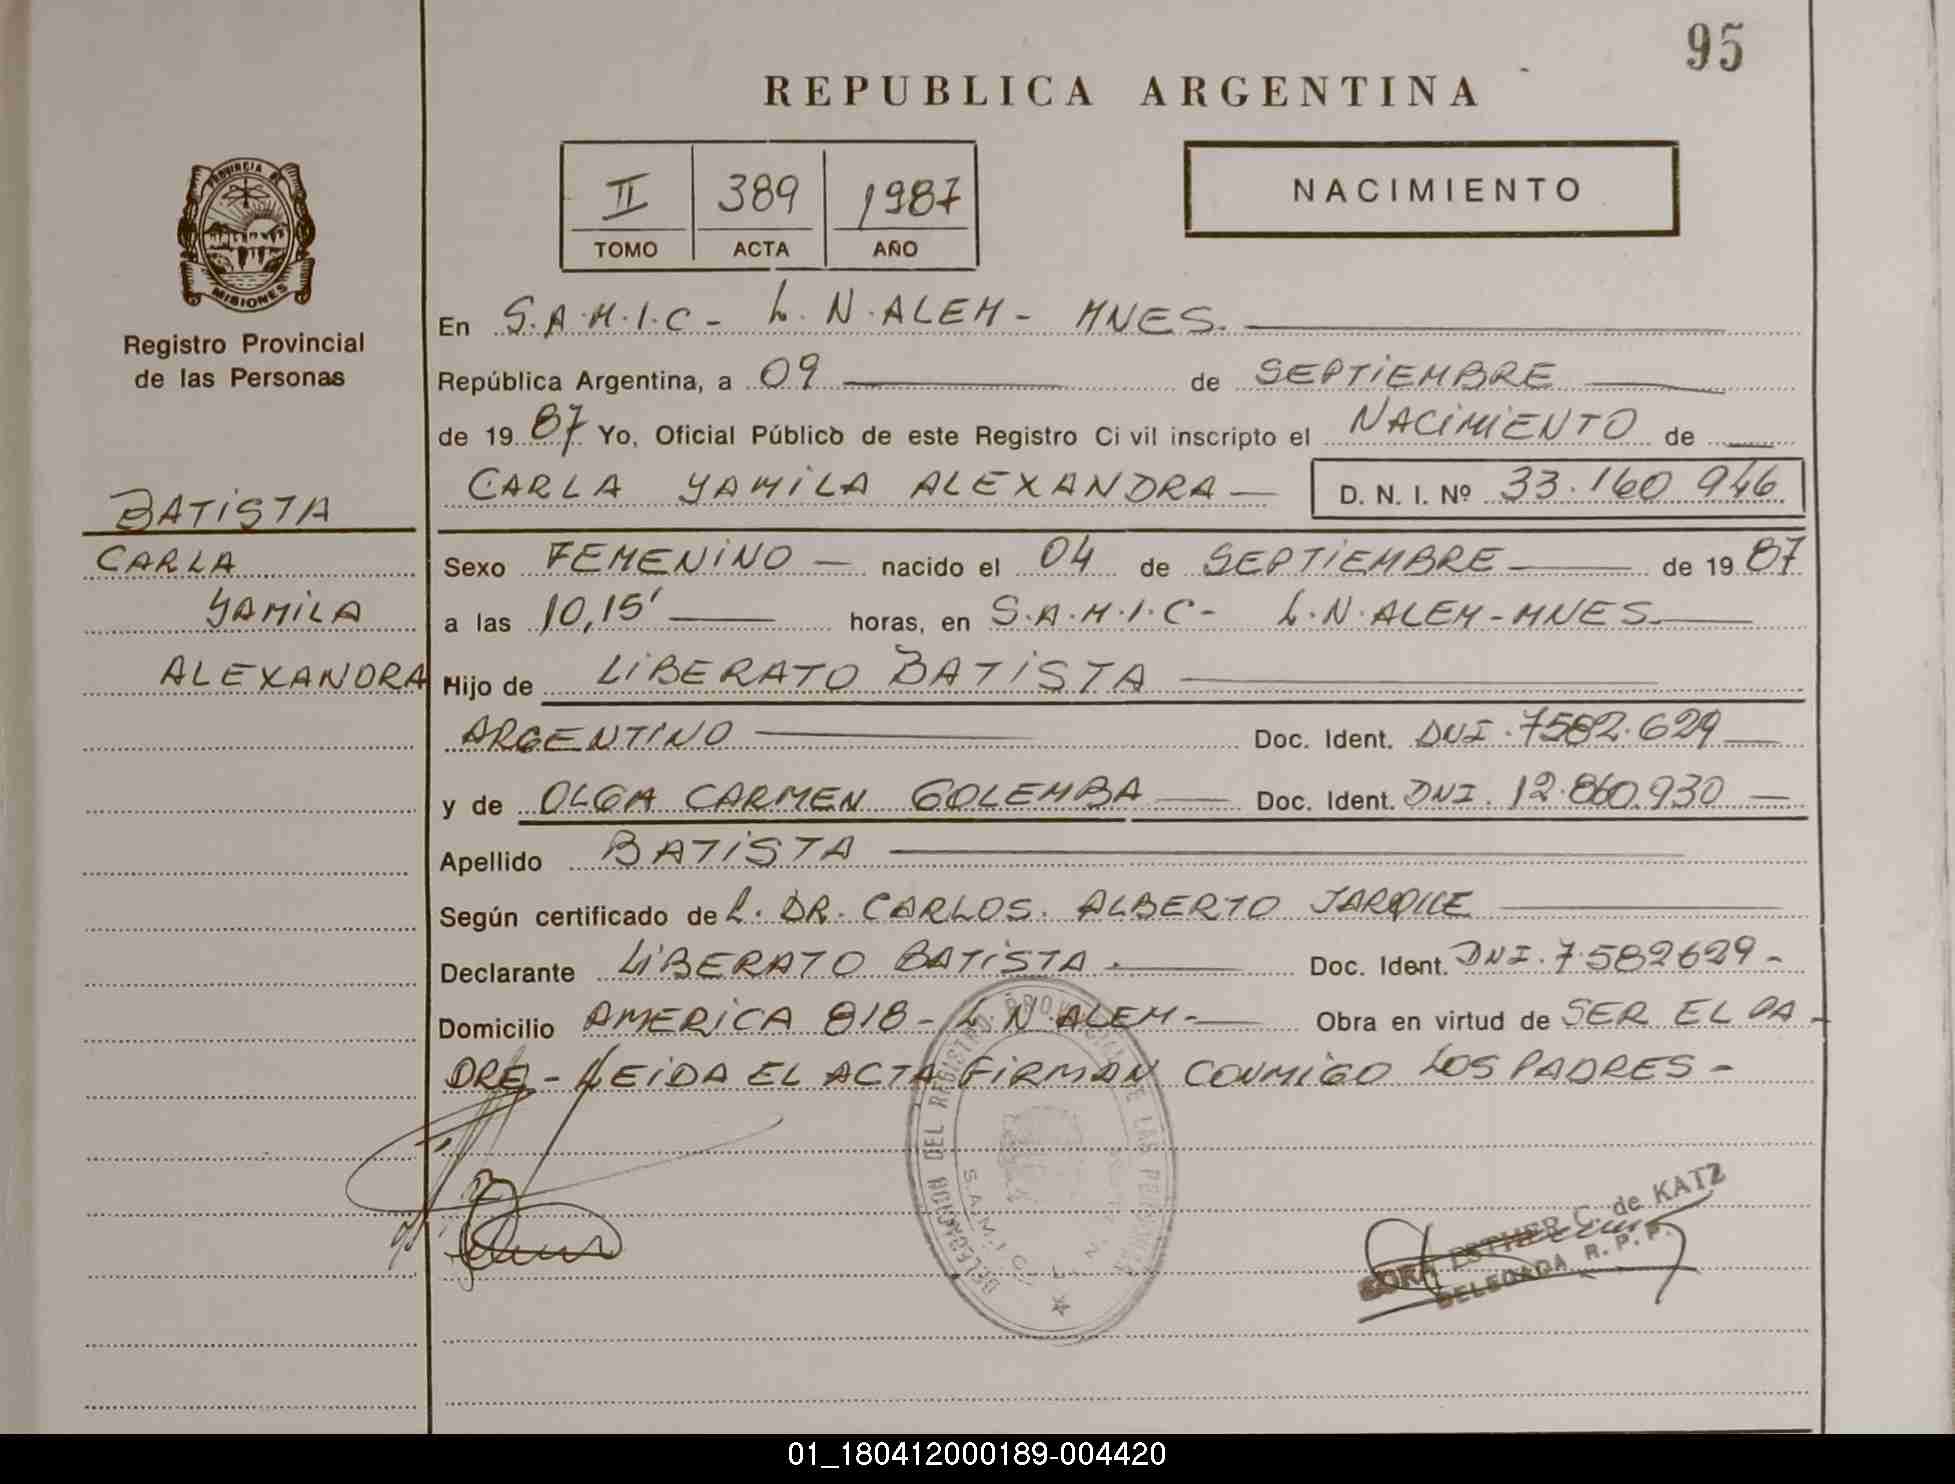 95
REPUBLICA ARGENTINA
II 389 1987
TOMO ACTA AÑO
NACIMIENTO
PROVINCIA DE
MISIONES
Registro Provincial
de las Personas
BATISTA
CARLA
YAMILA
ALEXANDRA
En S.A.M.I.C - L.N.ALEM - MNES.
República Argentina, a 09 de SEPTIEMBRE
de 1987 Yo, Oficial Público de este Registro Civil inscripto el NACIMIENTO de
CARLA YAMILA ALEXANDRA D. N. I. Nº 33.160 946
Sexo FEMENINO nacido el 04 de SEPTIEMBRE de 1987
a las 10,15' horas, en S.A.M.I.C - L.N.ALEM - MNES.
Hijo de LIBERATO BATISTA
ARGENTINO Doc. Ident. DNI. 7582.629
y de OLGA CARMEN GOLEMBA Doc. Ident. DNI. 12.860.930
Apellido BATISTA
Según certificado de L. DR. CARLOS. ALBERTO JARQUE
Declarante LIBERATO BATISTA. Doc. Ident. DNI. 7.582629 -
Domicilio AMERICA 818 - L N ALEM - Obra en virtud de SER EL PA -
DRE - LEIDA EL ACTA FIRMAN CONMIGO LOS PADRES -
DELEGACION DEL REGISTRO PROVINCIAL DE LAS PERSONAS
S.A.M.I.C.
ESTHER C. de KATZ
DELEGADA R. P. P.
01_180412000189-004420